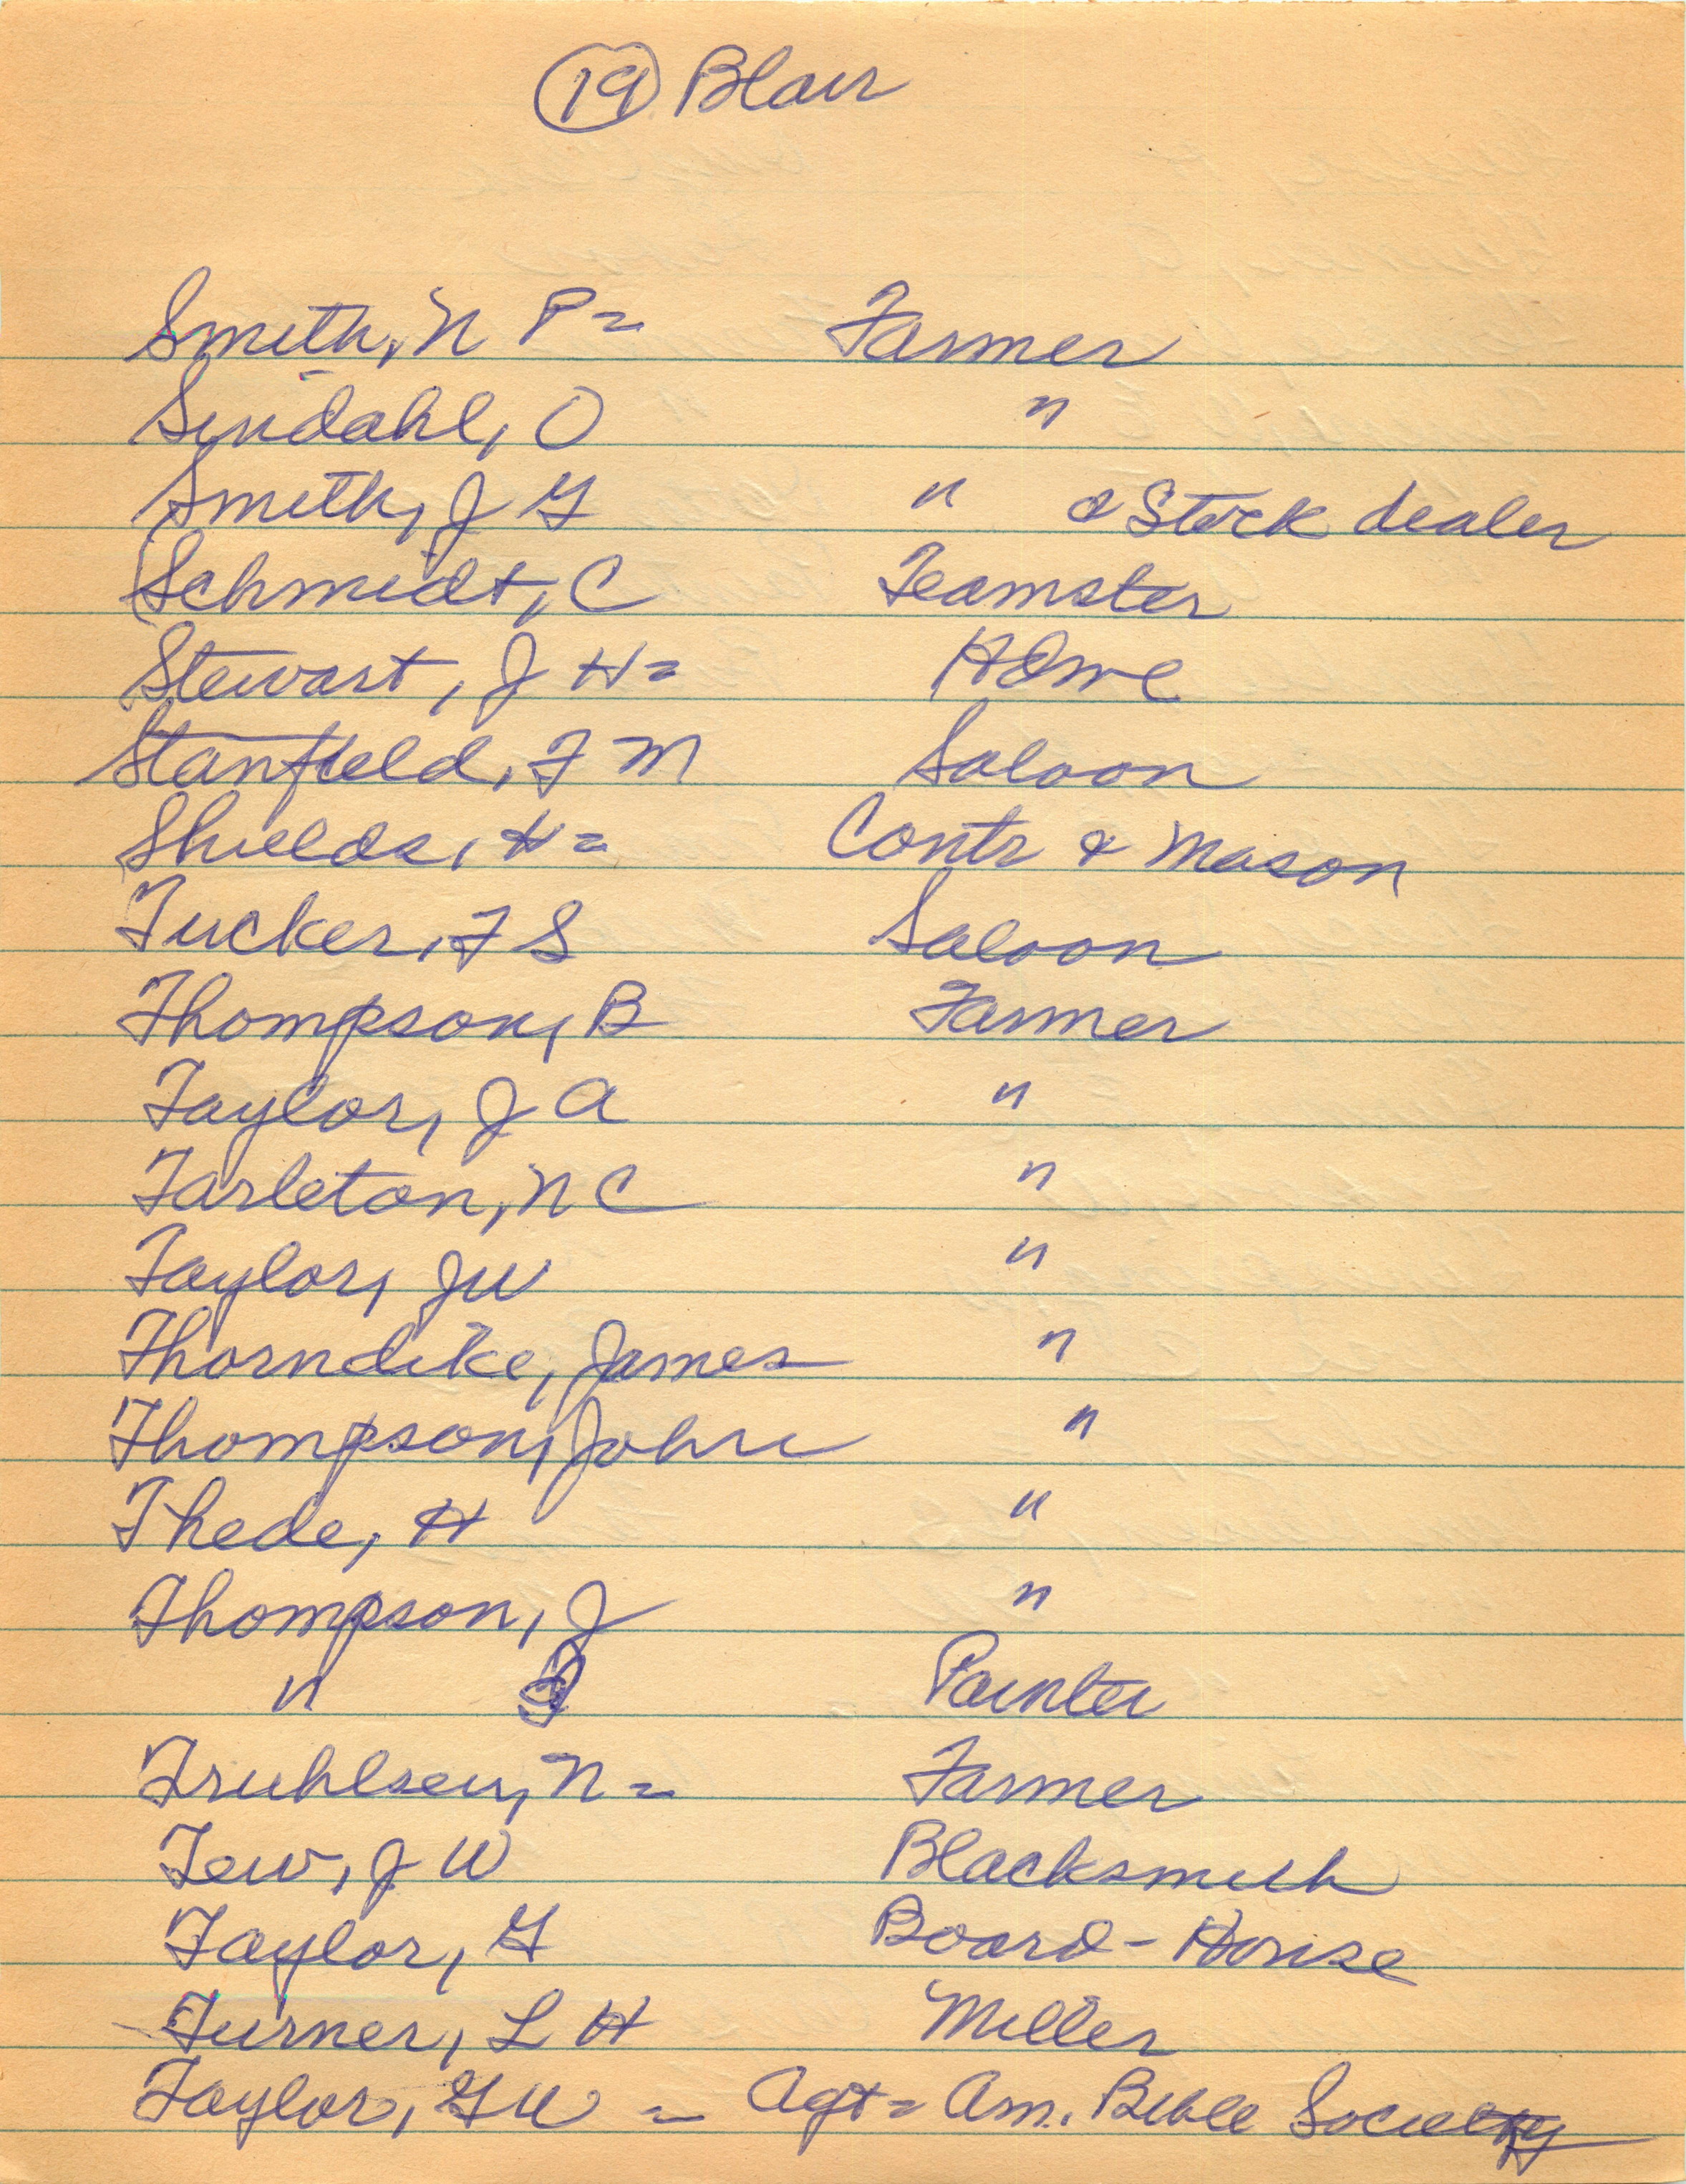 19 Blair
Smith, N P = Farmer
Sindahl, O "
Smith, J G " & Stock dealer
Schmidt, C Teamster
Stewart, J H = Home
Stanfield, F M Saloon
Shields, H = Contr & Mason
Tucker, F S Saloon
Thompson, B Farmer
Taylor, J A "
Tarleton, N C "
Taylor, J W "
Thorndike, James "
Thompson, John "
Thede, H "
Thompson, J "
" Painter
Truhlsen, N = Farmer
Tew, J W Blacksmith
Taylor, G Board-House
Turner, L H Miller
Taylor, G W = Agt = Am. Bible Society